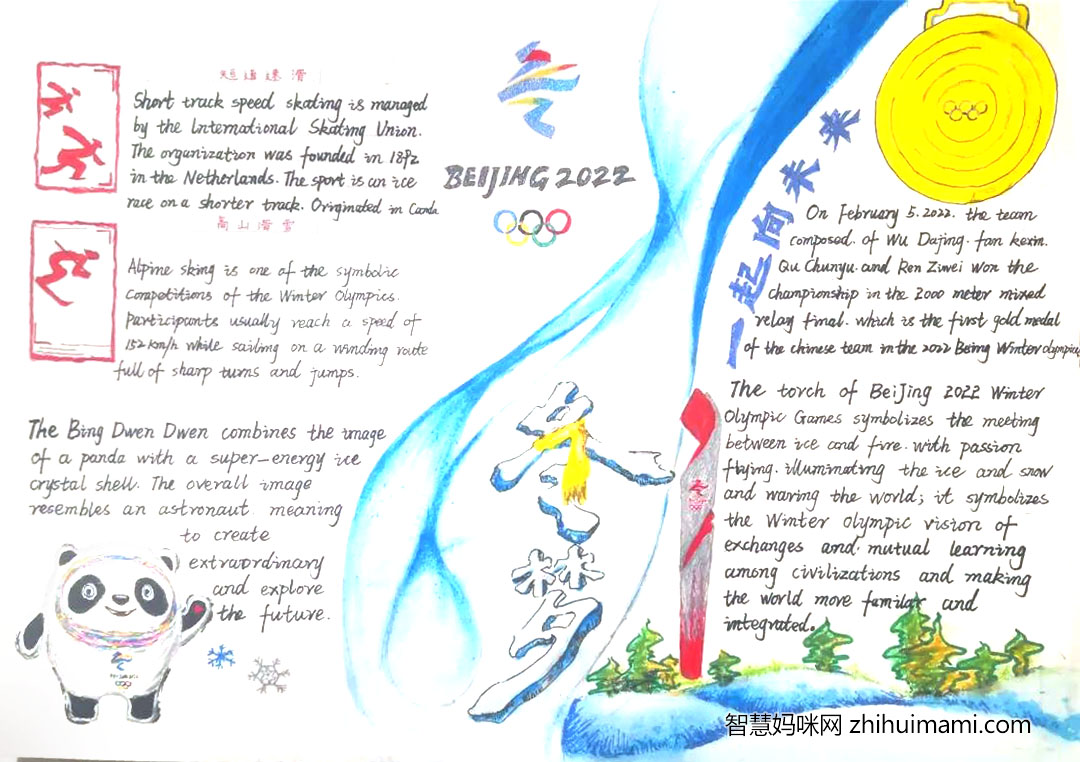 短道速滑
Short track speed skating is managed
by the International Skating Union.
The organization was founded in 1892
in the Netherlands. The sport is an ice
race on a shorter track. Originated in Canda
高山滑雪
Alpine skiing is one of the symbolic
Competitions of the Winter Olympics.
Participants usually reach a speed of
152 km/h while sailing on a winding route
full of sharp turns and jumps.
The Bing Dwen Dwen combines the image
of a panda with a super-energy ice
crystal shell. The overall image
resembles an astronaut, meaning
to create
extraordinary
and explore
the future.
BEIJING 2022
冬梦
一起向未来
On February 5.2022. the team
composed. of Wu Dajing. fan kexin.
Qu Chunyu. and Ren Ziwei won the
championship in the 2000 meter mixed
relay final. which is the first gold medal
of the chinese team in the 2022 Beijing Winter olympics
The torch of BeiJing 2022 Winter
Olympic Games symbolizes the meeting
between ice and fire. with passion
flying. illuminating the ice and snow
and waring the world; it symbolizes
the Winter olympic vision of
exchanges and mutual learning
among civilizations and making
the world more familar and
integrated.
智慧妈咪网 zhihuimami.com